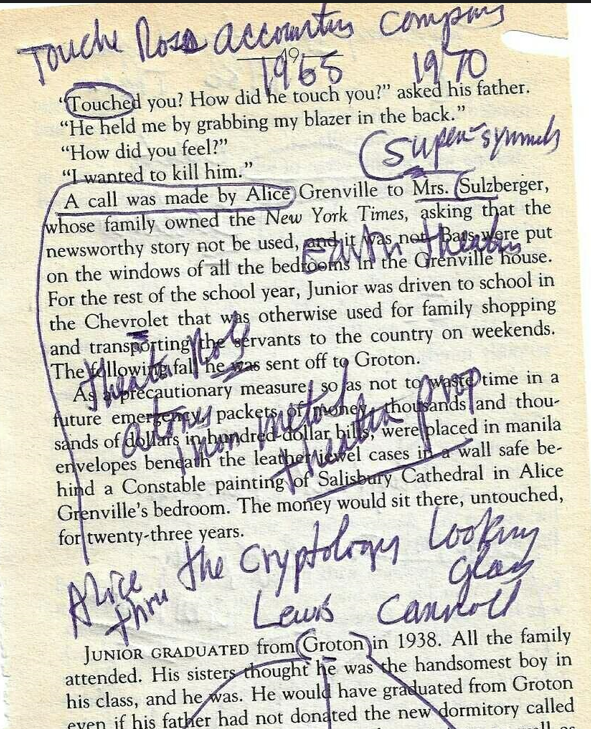 Touche Ross accounting company
49
1965 1970
"Touched you? How did he touch you?" asked his father.
"He held me by grabbing my blazer in the back."
"How did you feel?"
(super-symmetry
"I wanted to kill him."
A call was made by Alice Grenville to Mrs. Sulzberger,
whose family owned the New York Times, asking that the
newsworthy story not be used, and it was not. Bars were put
Earth theatre
on the windows of all the bedrooms in the Grenville house.
For the rest of the school year, Junior was driven to school in
the Chevrolet that was otherwise used for family shopping
and transporting the servants to the country on weekends.
The following fall he was sent off to Groton.
theatre
As a precautionary measure, so as not to waste time in a
future emergency, packets of money, thousands and thou-
sands of dollars in hundred-dollar bills, were placed in manila
theatre prop
envelopes beneath the leather jewel cases in a wall safe be-
hind a Constable painting of Salisbury Cathedral in Alice
Grenville's bedroom. The money would sit there, untouched,
for twenty-three years.
Alice thru the cryptology Looking Glass
Lewis Carroll
JUNIOR GRADUATED from Groton in 1938. All the family
attended. His sisters thought he was the handsomest boy in
his class, and he was. He would have graduated from Groton
even if his father had not donated the new dormitory called